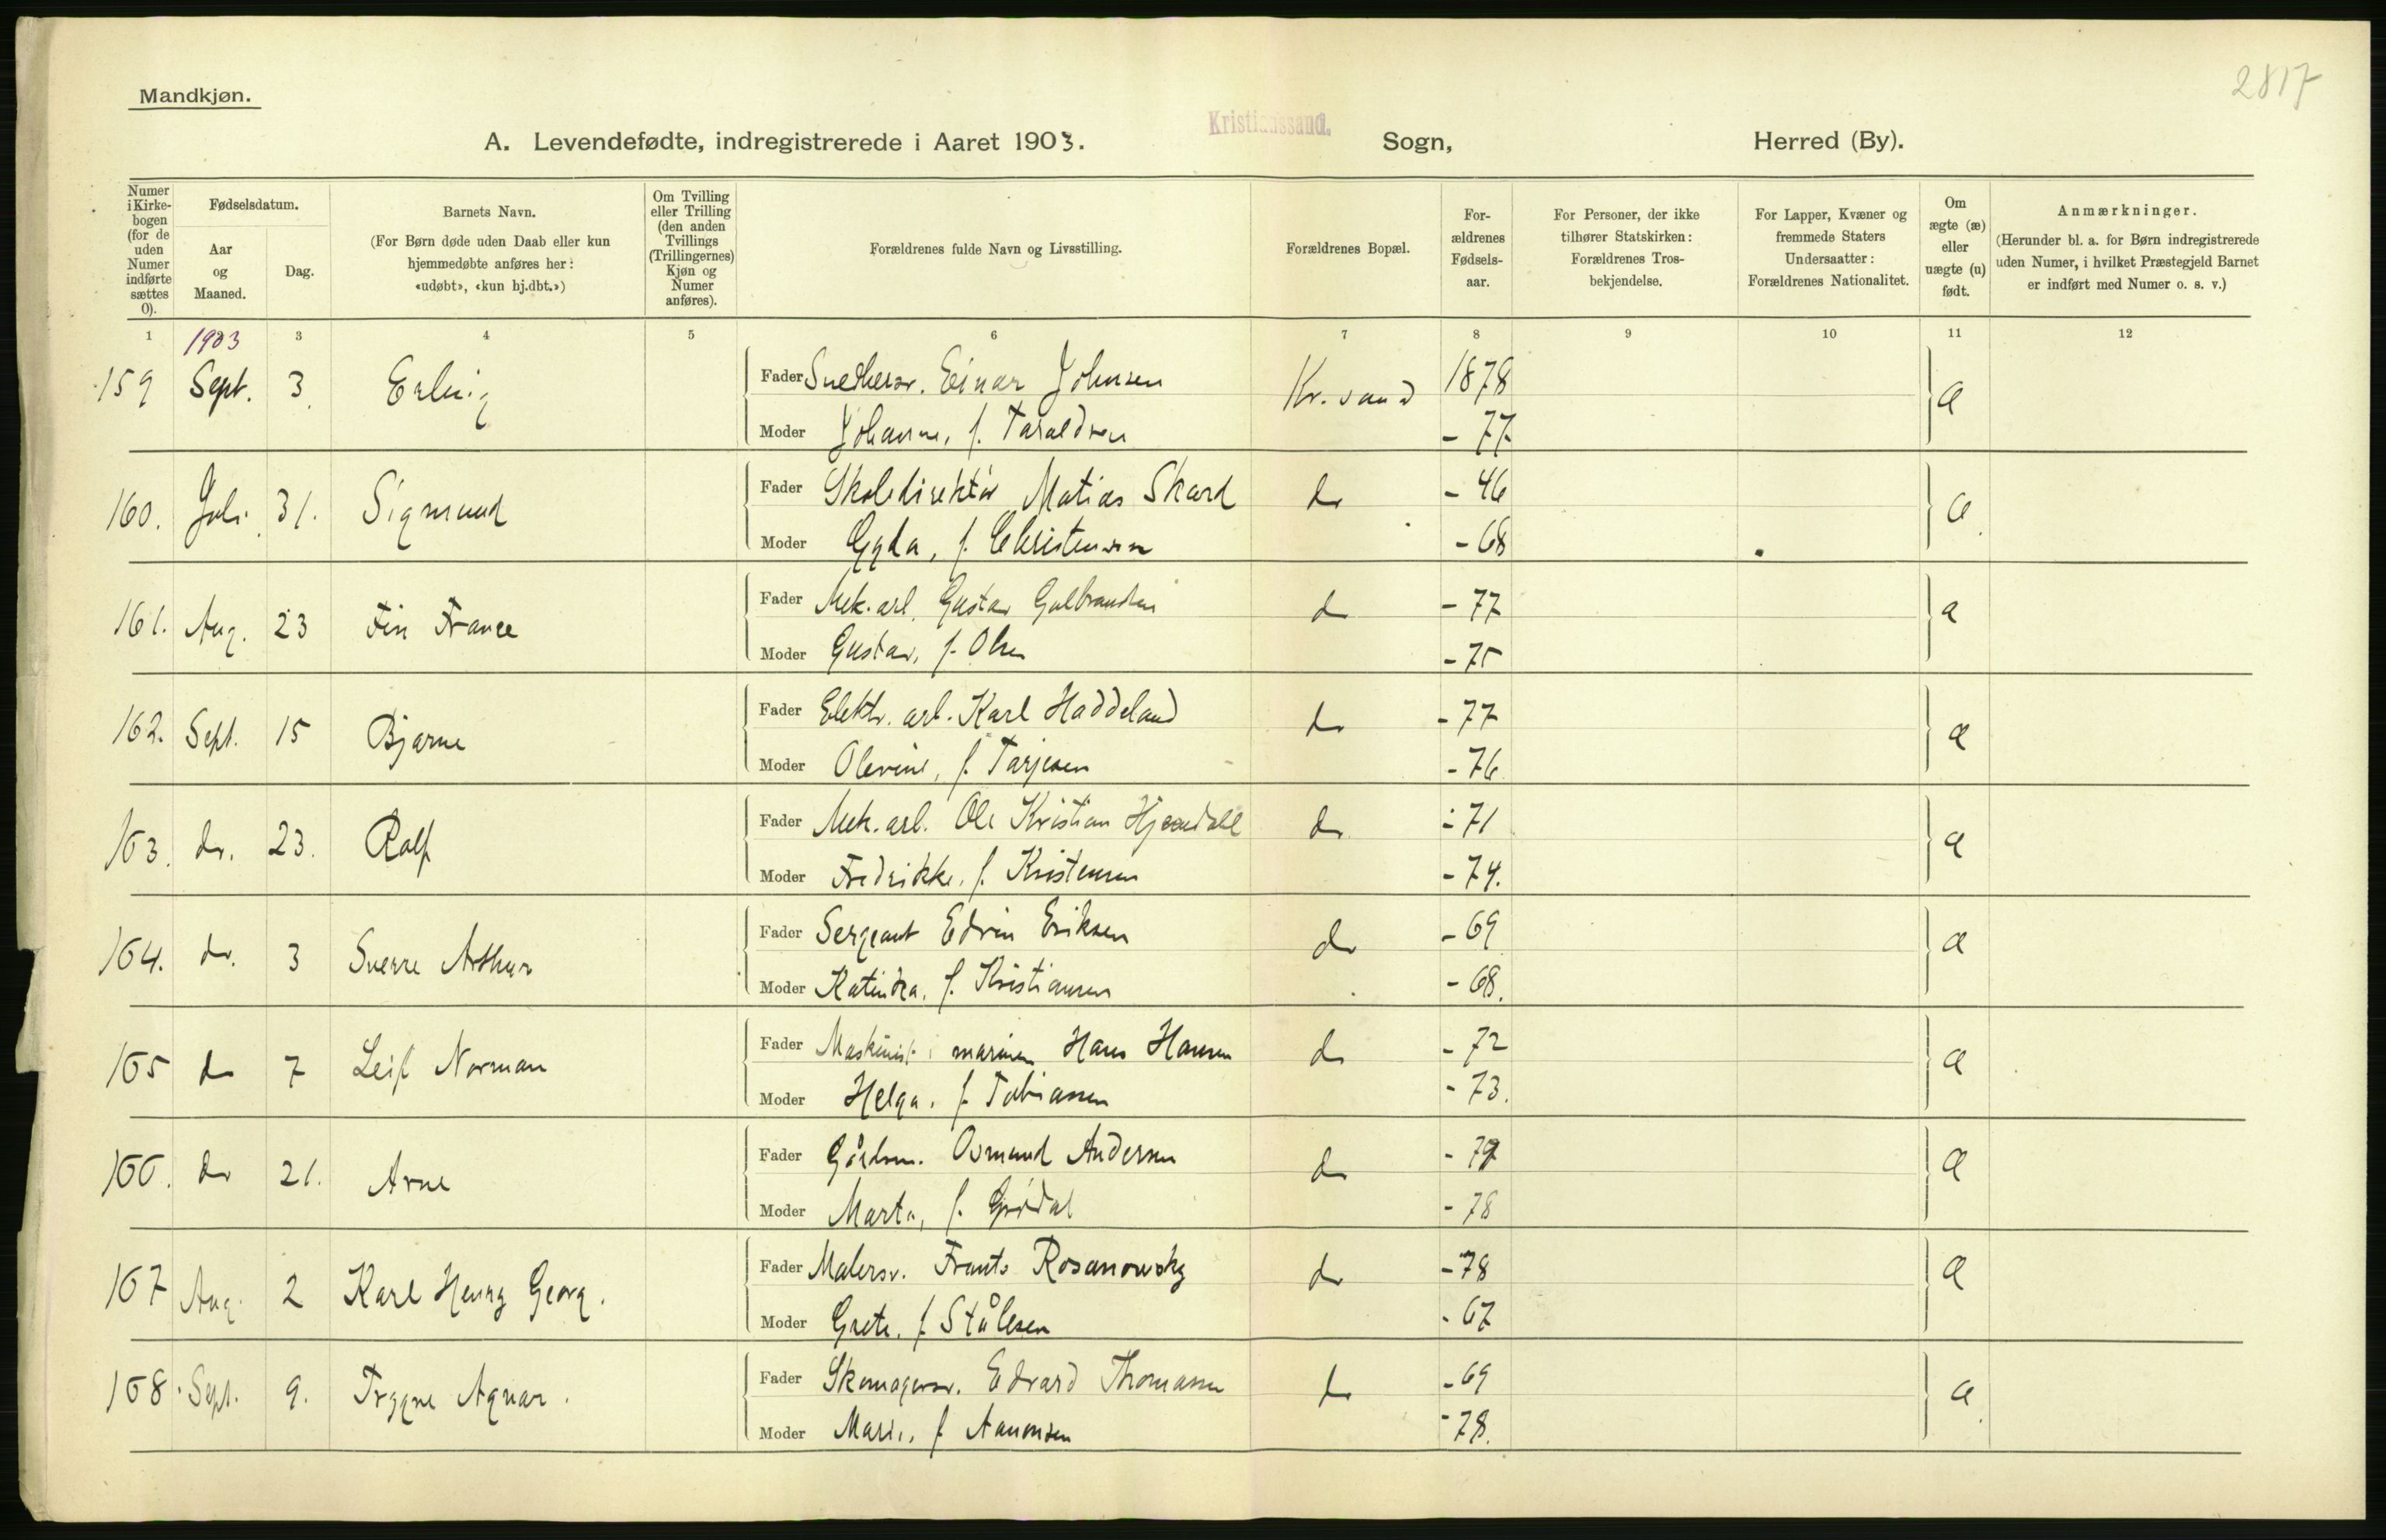 2817
Mandkjøn.
Kristianssand.
A. Levendefødte, indregistrerede i Aaret 1903. Sogn, Herred (By).
Numer i Kirke-bogen (for de uden Numer indførte sættes 0).
Fødselsdatum.
Aar og Maaned.
Dag.
Barnets Navn.
(For Børn døde uden Daab eller kun hjemmedøbte anføres her: «udøbt», «kun hj.dbt.»)
Om Tvilling eller Trilling (den anden Tvillings (Trillingernes) Kjøn og Numer anføres).
Forældrenes fulde Navn og Livsstilling.
Forældrenes Bopæl.
For-ældrenes Fødsels-aar.
For Personer, der ikke tilhører Statskirken: Forældrenes Tros-bekjendelse.
For Lapper, Kvæner og fremmede Staters Undersaatter: Forældrenes Nationalitet.
Om ægte (æ) eller uægte (u) født.
Anmærkninger.
(Herunder bl. a. for Børn indregistrerede uden Numer, i hvilket Præstegjeld Barnet er indført med Numer o. s. v.)
1 3 4 5 6 7 8 9 10 11 12
1903
159 Sept. 3 Erling Fader Snedkersv. Einar Johnsen Kr.sand 1878 æ
Moder Johanne, f. Taraldsen - 77
160. Juli 31. Sigmund Fader Skoledirektør Matias Skard do - 46 æ
Moder Gyda, f. Christensen - 68
161. Aug. 23 Fin France Fader Mek. arb. Gustav Gulbrandsen do - 77 æ
Moder Gustav, f. Olsen - 75
162. Sept. 15 Bjarne Fader Elektr. arb. Karl Haddeland do - 77 æ
Moder Olevine, f. Tarjesen - 76
163. do. 23. Ralf Fader Mek. arb. Ole Kristian do - 71 æ
Moder Fredrikke, f. Kristensen - 74.
164. do. 3 Sverre Arthur Fader Sergeant Edvin Eriksen do - 69 æ
Moder Katinka, f. Kristiansen - 68.
165 do 7 Leif Norman Fader Maskinist i marinen Hans Hansen do - 72 æ
Moder Helga, f. Tobiassen - 73.
166. do 21. Arne Fader Gårdsm. Osmund Andersen do æ
Moder Marta, f. - 78
167 Aug. 2 Karl Henry Georg. Fader Malersv. Frants Rosanowsky do - 78 æ
Moder Grete, f. Stålesen - 67
168. Sept. 9. Trygve Agnar. Fader Skomagersv. Edvard Thomassen do - 69 æ
Moder Marie, f. Aanonsen - 78.